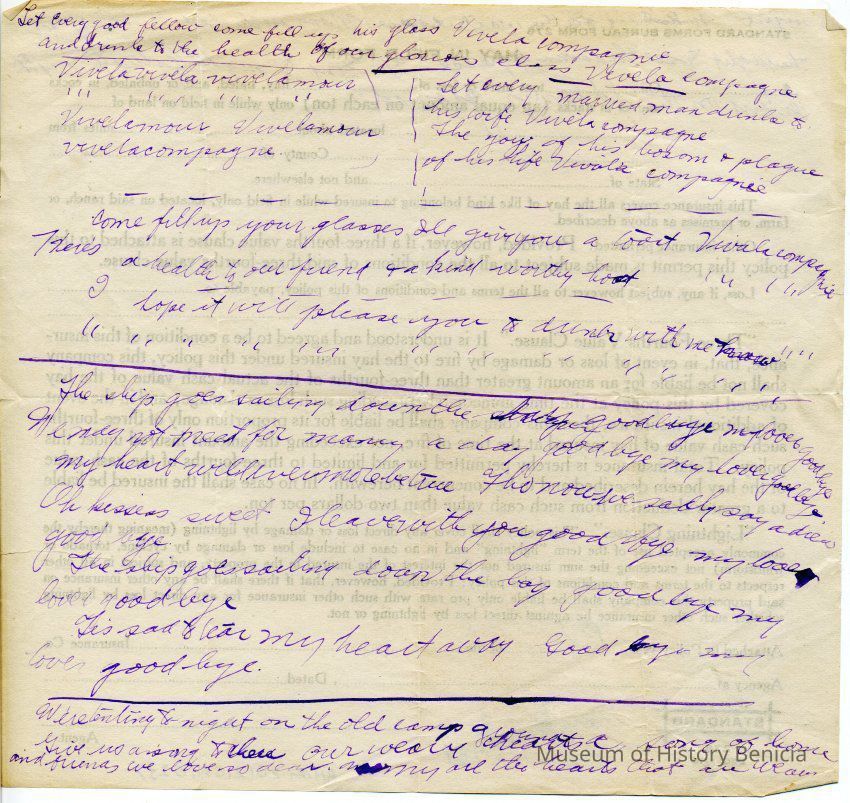 Let every good fellow come fill up his glass Vivela compagnie
and drink to the health of our glorious class Vivela compagnie
Vivela vivela vivelamour
" " " " "
Vivelamour Vivelamour
vivelacompagne
Let every married man drink to
his wife Vivelacompagne
The joy of his bosom & plague
of his life Vivela compagnie
Come fill up your glasses Ill give you a toast Vivela compagnie
Theres a health to our friend & a kind worthy host " " " "
I hope it will please you to drink with me " "
" " " " " " " " "
The ship goes sailing down the bay Good bye my lover good bye
We may not meet for many a day good bye my lover good bye
my heart will ever more be true Tho now we sadly say adieu
Oh kisses sweet I leave with you good bye my lover
good bye
The ship goes sailing down the bay good bye my
lover good bye
Tis sad to tear my heart away Good bye my
lover good bye.
Were tenting to night on the old camp ground
Give us a song to cheer our weary hearts a song of home
and friends we love so dear. many are the hearts that are weary
Museum of History Benicia
STANDARD FORMS BUREAU FORM 276